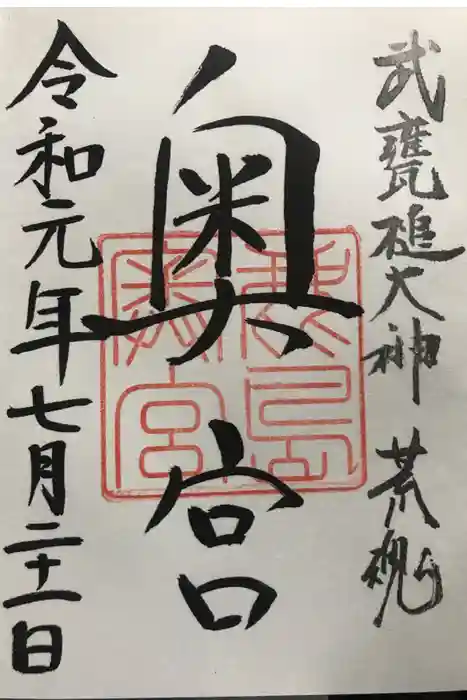 武甕槌大神 荒魂
奥宮
鹿島奥宮
令和元年七月二十一日